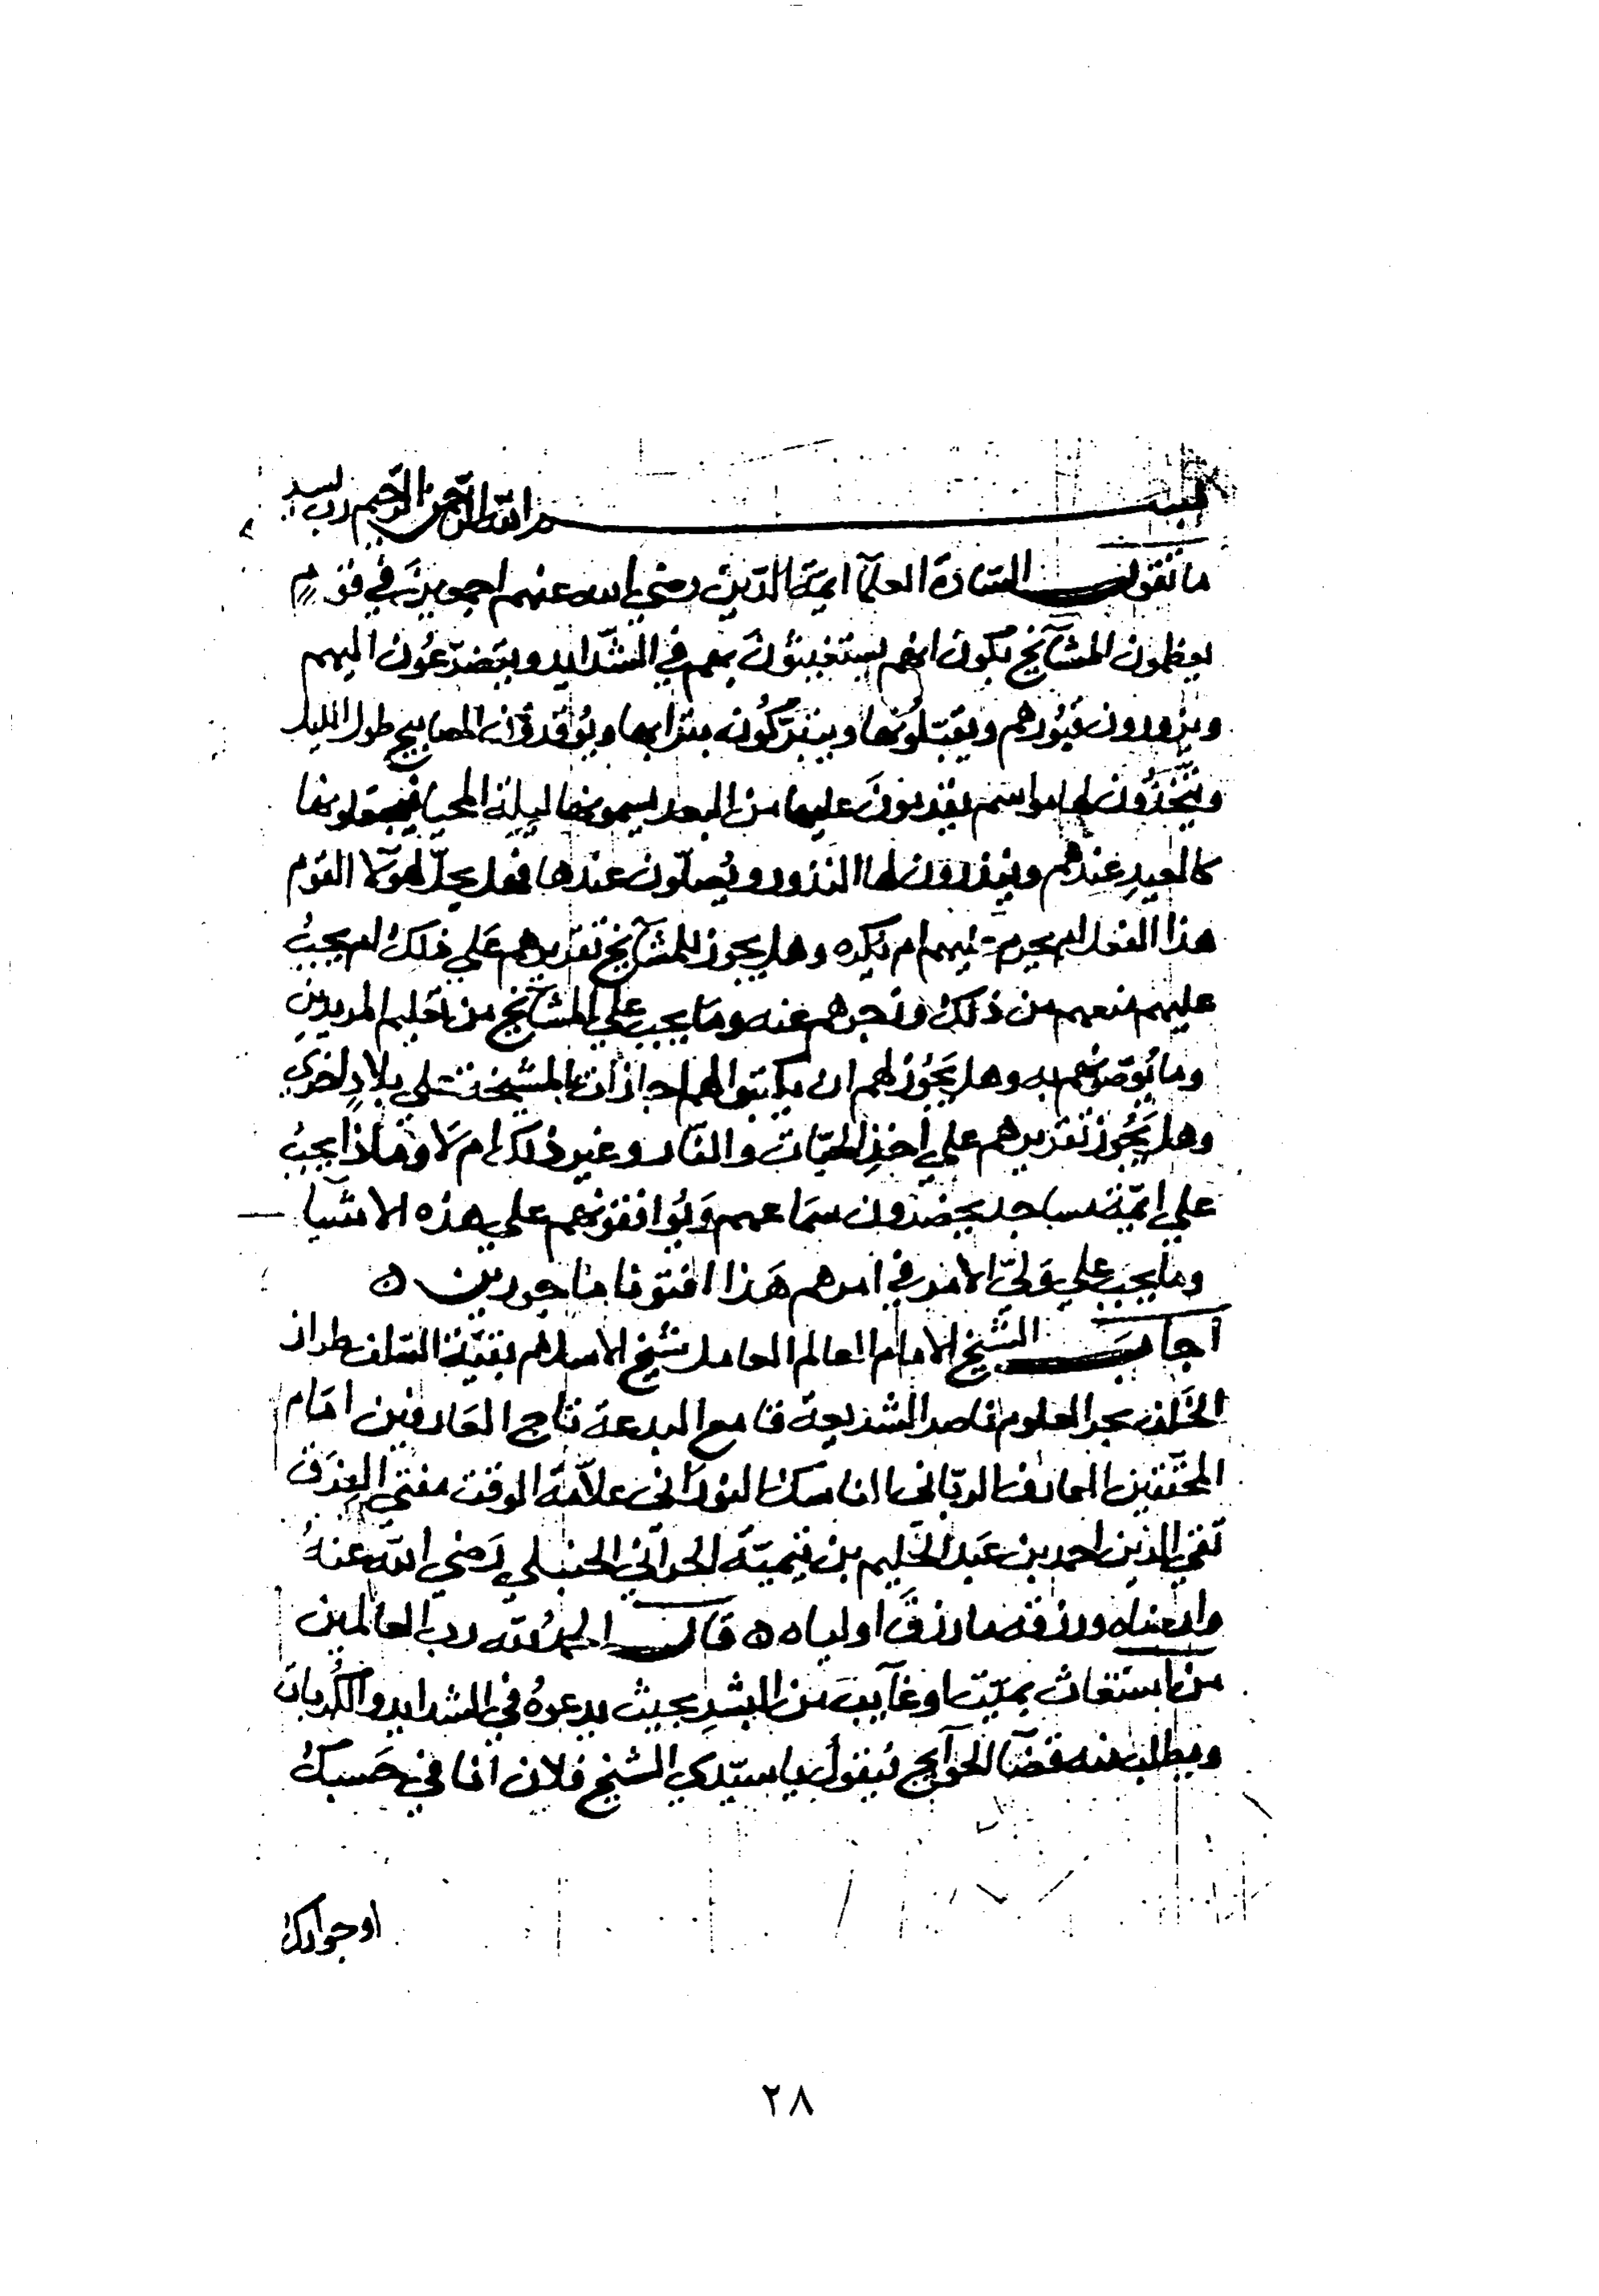 بسم الله الرحمن الرحيم رب يسر
ما تقول السادة العلما ايمة الدين رضي الله عنهم اجمعين في قوم
يعظمون المشايخ بكون انهم يستغيثون بهم في الشدايد ويتضرعون اليهم
ويزورون قبورهم ويقبلونها ويتبركون بترابها ويوقدون المصابيح طول الليل
ويتخذون لها مواسم يقدمون عليها من البعد يسمونها ليلة المحيا فيجعلونها
كالعيد عندهم وينذرون لها النذور ويصلون عندها فهل يحل لهولا القوم
هذا الفعل ام يحرم عليهم ام يكره وهل يجوز للمشايخ تقريرهم على ذلك ام يجب
عليهم منعهم من ذلك وزجرهم عنه وما يجب على المشايخ من تعليم المريدين
وما يوصونهم به وهل يجوز لهم ان يكتبوا لهم اجازات بالمشيخة على بلاد اخرى
وهل يجوز تقريرهم على اخذ الحيات والنار وغير ذلك ام لا وماذا يجب
على ايمة مساجد يحضرون سماعهم ويوافقونهم على هذه الاشيا
وما يجب على ولي الامر في امرهم هذا افتونا ماجورين ه
اجاب الشيخ الامام العالم العامل شيخ الاسلام بقية السلف طراز
الخلف بحر العلوم ناصر الشريعة قامع البدعة تاج العارفين امام
المحققين العارف الرباني الناسك النوراني علامة الوقت مفتي الفرق
تقي الدين احمد بن عبد الحليم بن تيمية الحراني الحنبلي رضي الله عنه
وارضاه ورزقه ما رزق اولياه ه قال الحمد لله رب العالمين
من استغاث بميت او غايب من البشر بحيث يدعوه في الشدايد والكربات
ويطلب منه قضا الحوايج فيقول يا سيدي الشيخ فلان انا في حسبك
او جوارك
٢٨